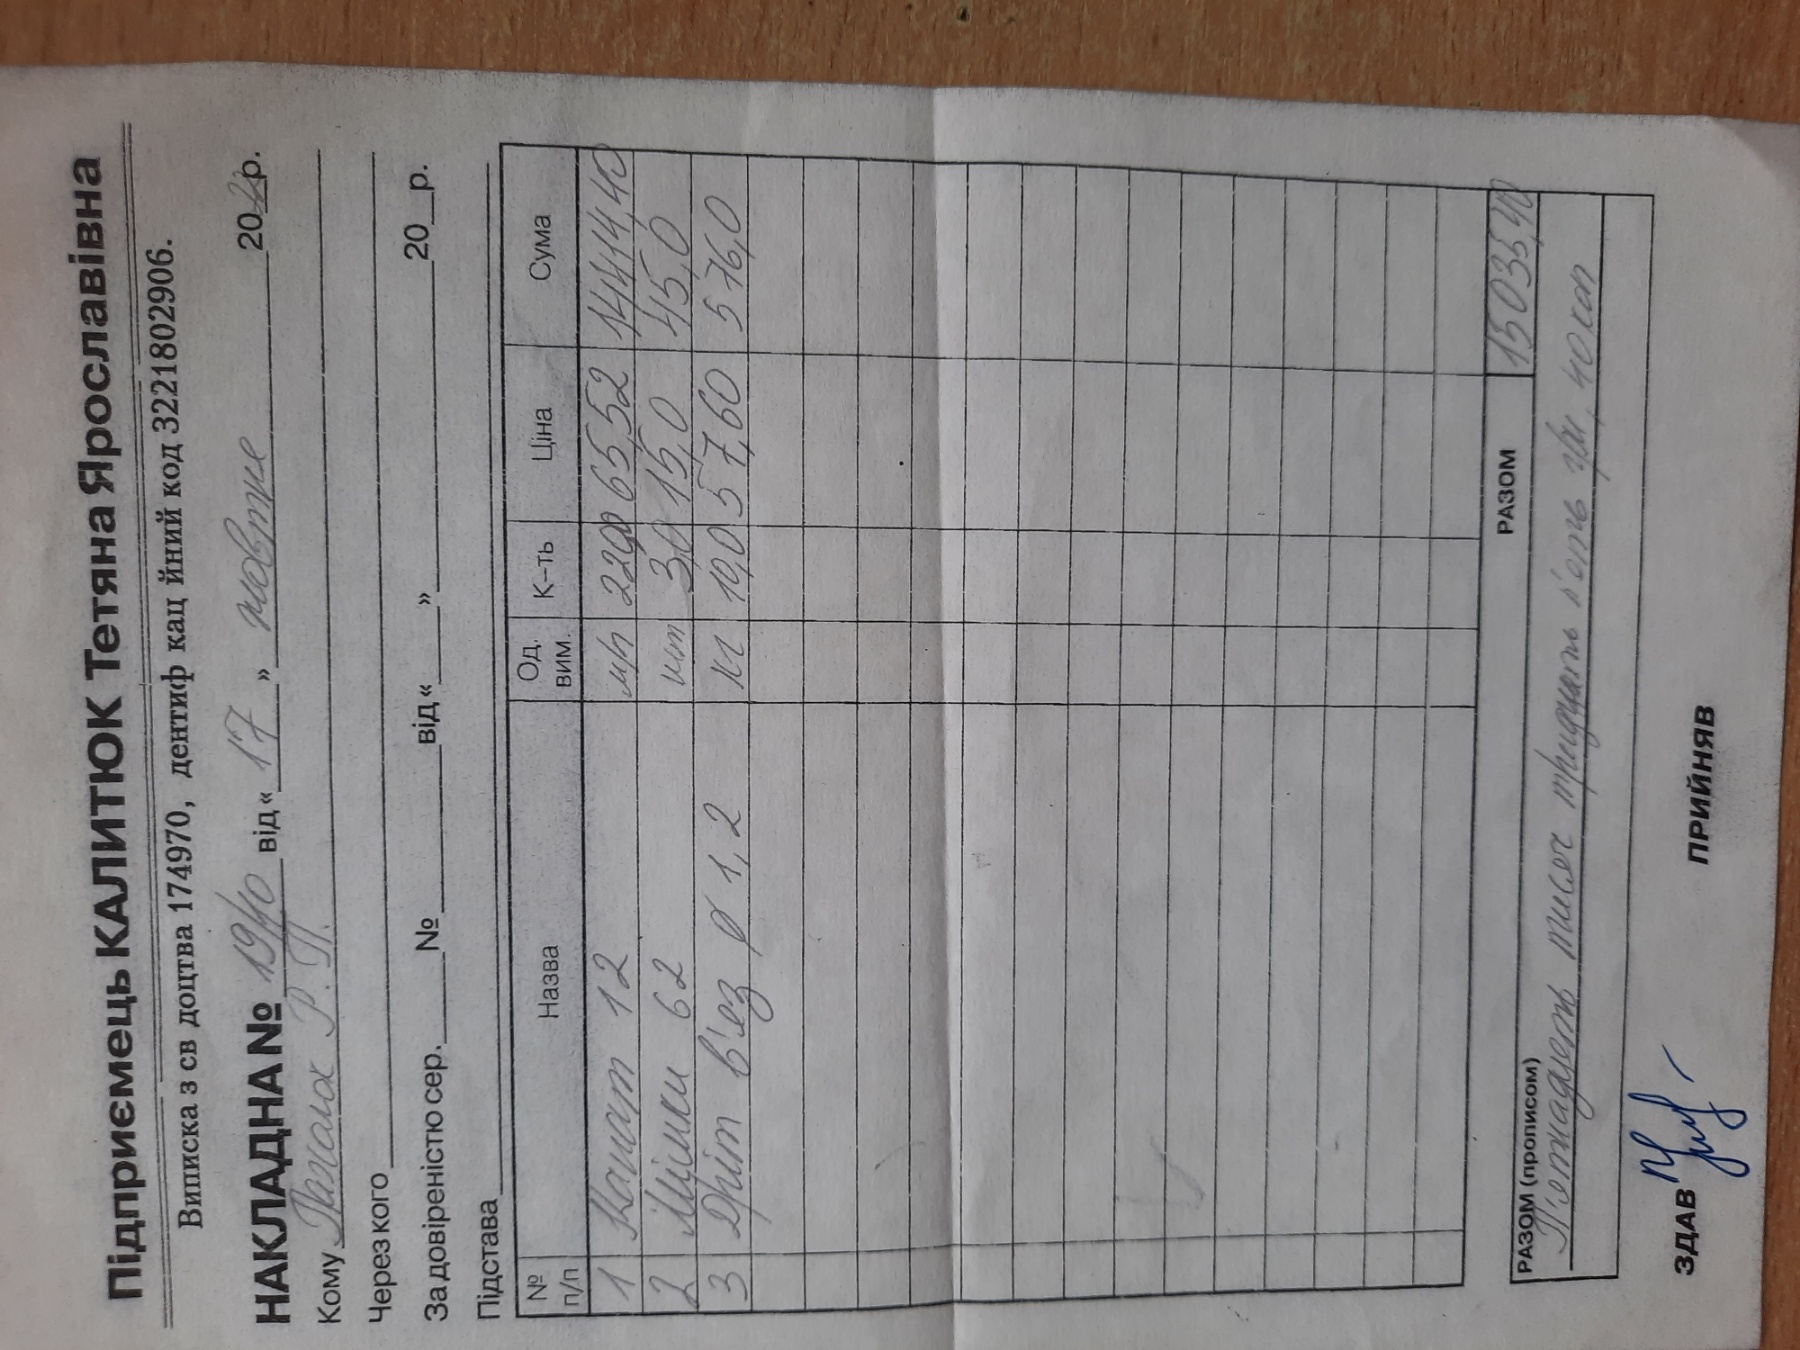 Підприємець КАЛИТЮК Тетяна Ярославівна
Виписка з св доцтва 1174970, дентиф кац йний код 3221802906.
НАКЛАДНА № 19/10 від « 17 » жовтне 20 р.
Кому Р. П.
Через кого
За довіреністю сер. № від « » 20 р.
Підстава
№ п/п Назва Од. вим. К-ть Ціна Сума
1 Канат 12 мп 220,0 65,52 14414,40
2 Мішки 62 шт 3,0 15,0 45,0
3 Дріт в'яз ø 1,2 кг 10,0 57,60 576,0
РАЗОМ 15035,40
РАЗОМ (прописом)
П'ятнадцять тисяч тридцять п'ять грн, 40 коп
ЗДАВ ПРИЙНЯВ